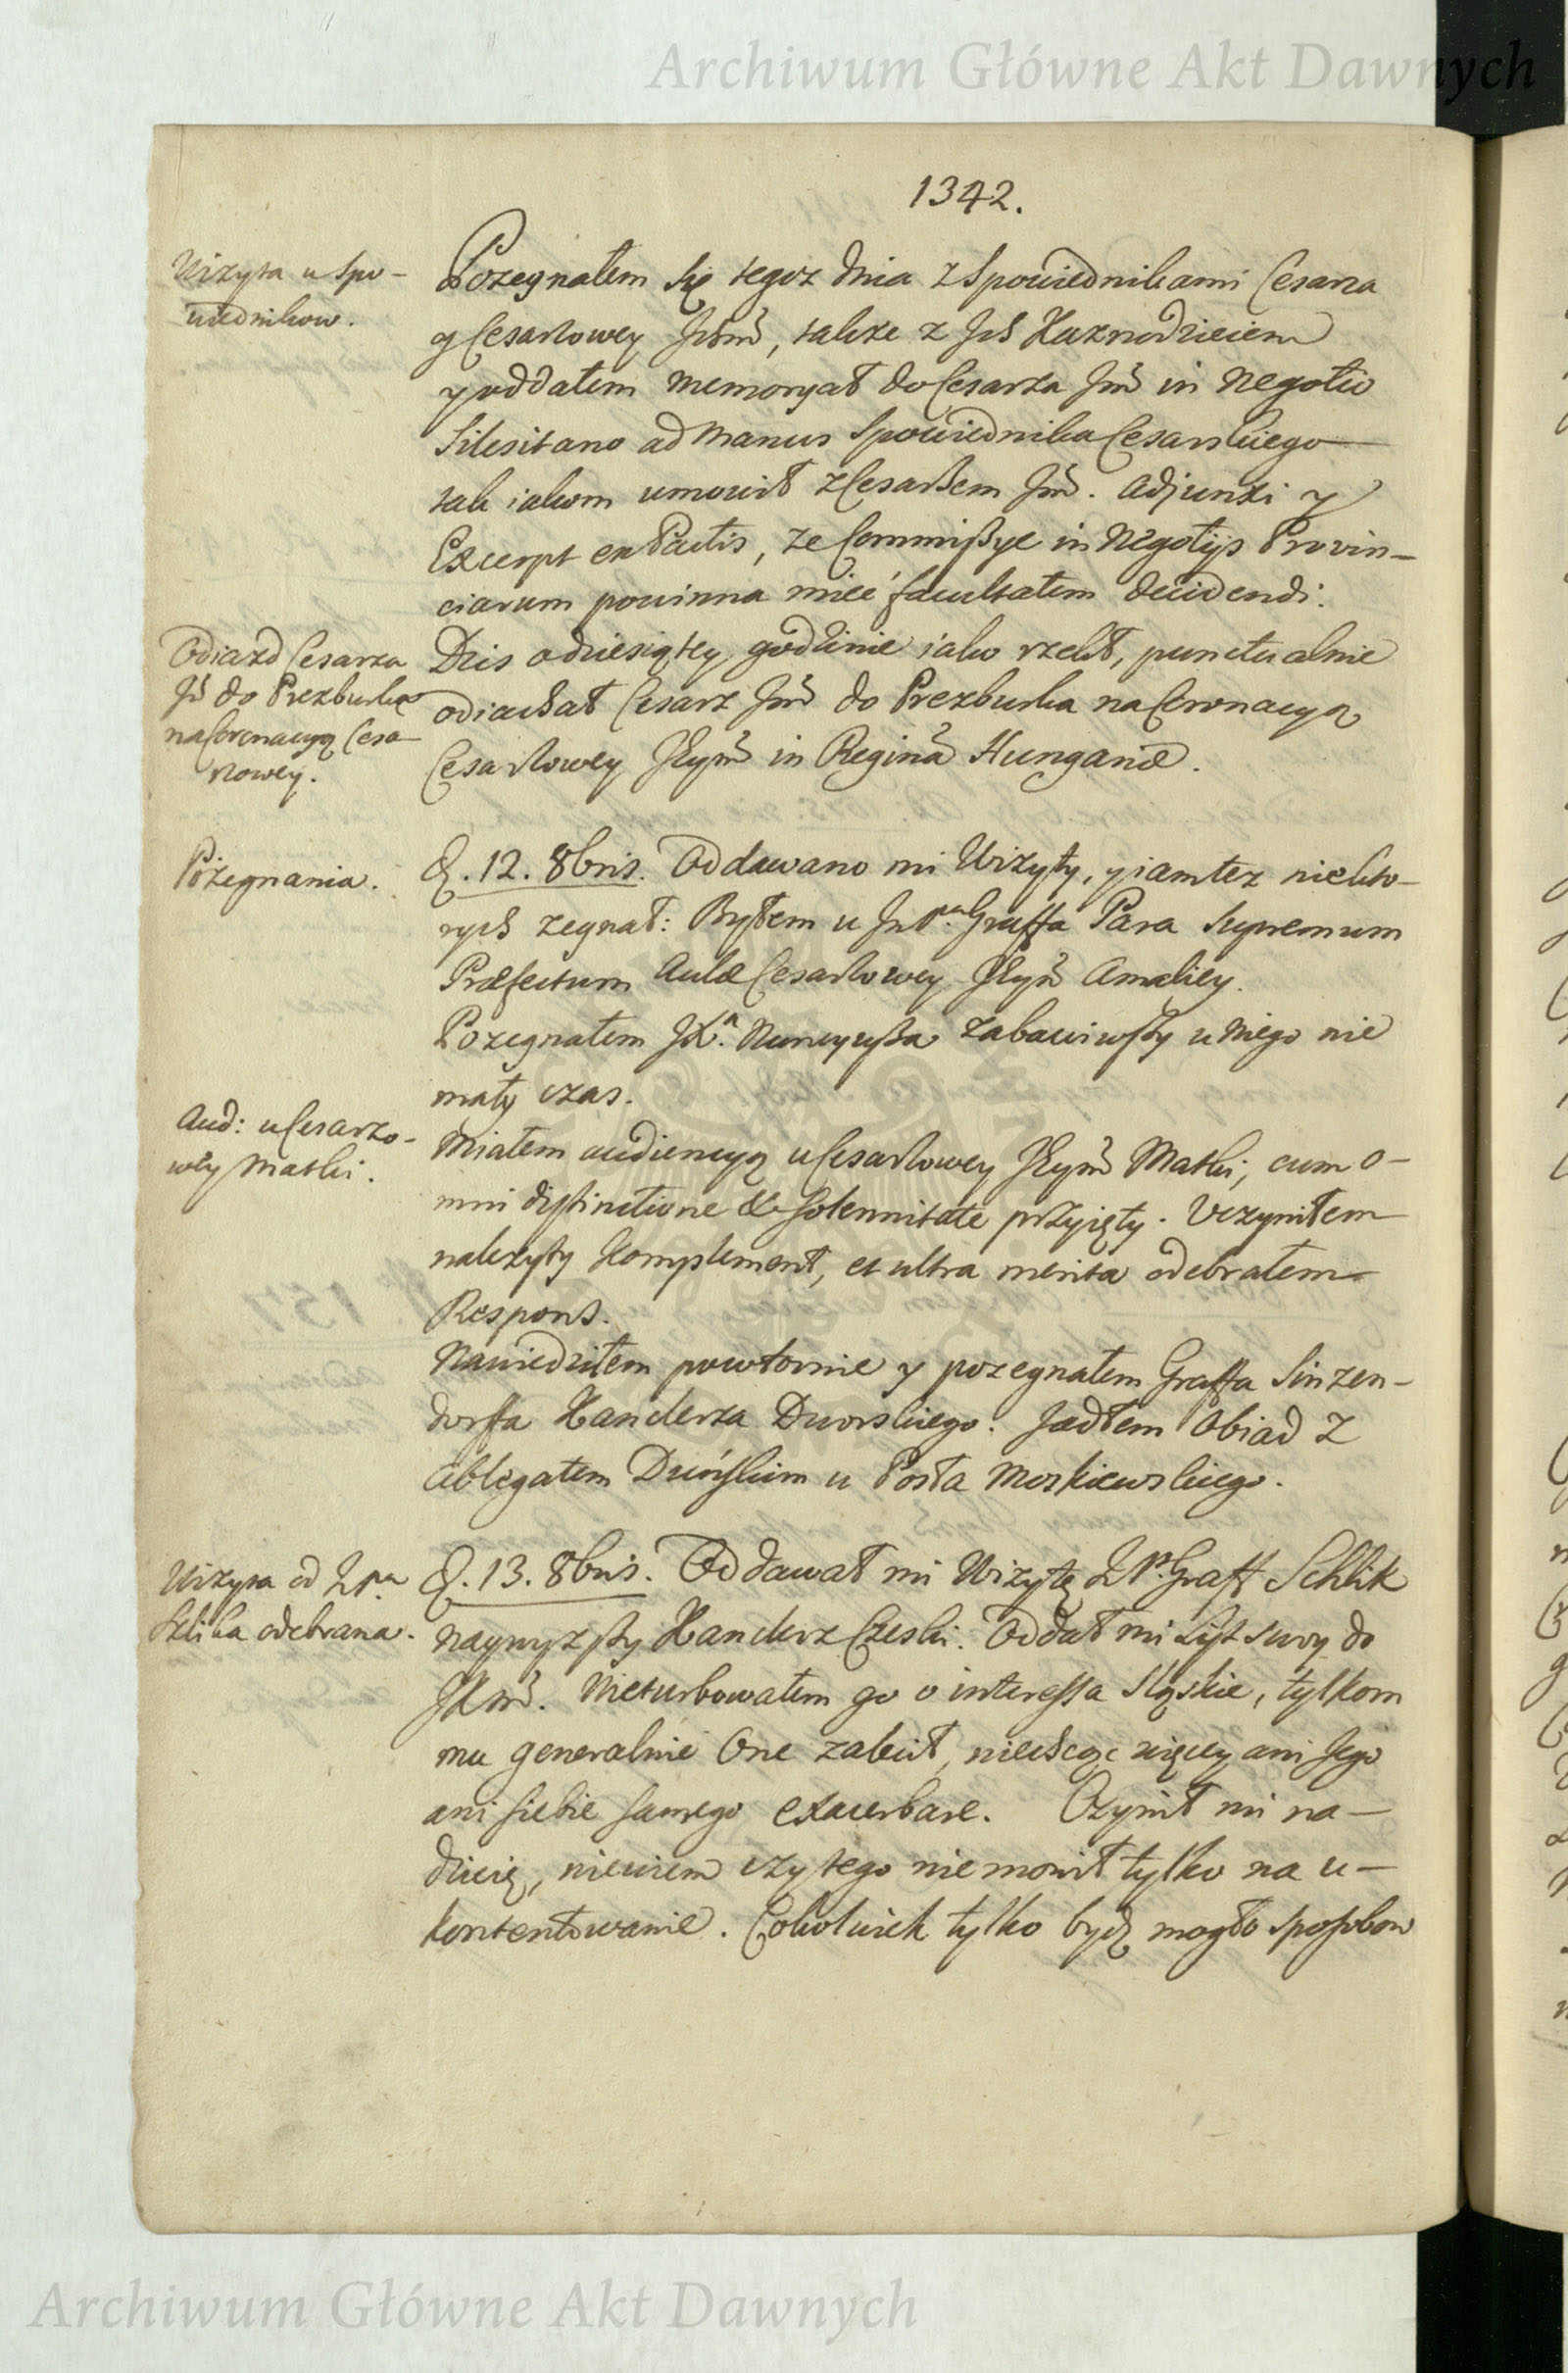 Archiwum Główne Akt Dawnych
1342.
Wizyta u Spo-
wiednikow.
Pozegnałem się tegoz dnia z Spowiednikami Cesarza
y Cesarzowey Jchmć, takze z Jch Kaznodzieiem
y oddałem memoryał do Cesarza Jmć in Negotio
Silesitano ad manus Spowiednika Cesarskiego
tak iakom umowił z Cesarzem Jmć. Adjunxi y
Excerpt ex Pactis, ze Commissye in Negotijs Provin-
ciarum powinna mieć facultatem decidendi.
Odiazd Cesarza
Jć do Prezburka
na Coronacyą Cesa-
rzowey.
Dzis o dziesiątey godzinie iako rzekł, punctualnie
odiachał Cesarz Jmć do Prezburka na Coronacyą
Cesarzowey Jeymć in Reginam Hungariæ.
Pożegnania.
D. 12. 8bris. Oddawano mi Wizyty, y iamtez niekto-
rych zegnał: Byłem u Jmci Pna Graffa Para Supremum
Præfectum Aulæ Cesarzowey Jeymć Amaliey.
Pozegnałem JXa. Nuncyusza zabawiwszy u niego nie
mały czas.
Aud: u Cesarzo-
wey Matki.
Miałem audiencyą u Cesarzowey Jeymć Matki, cum o-
mni distinctione & solennitate przyięty. Uczyniłem
należyty Komplement, et ultra merita odebrałem
Respons.
Nawiedziłem powtornie y pozegnałem Graffa Sinzen-
dorffa Kanclerza Dworskiego. Jadłem Obiad z
Ablegatem Duńskim u Posła Moskiewskiego.
Wizyta od JPna
Szlika odebrana.
D. 13. 8bris. Oddawał mi Wizytę JP. Graff Schlik
naywyzszy Kanclerz Czeski. Oddał mi List swoy do
JKmć. Nieturbowałem go o interessa Sląskie, tylkom
mu generalnie One zalecił, niechcąc więcey ani Jego
ani siebie samego exacerbare. Czynił mi na-
dzieię, niewiem czy tego niemowił tylko na u-
kontentowanie. Cokolwiek tylko bydz mogło sposobow
Archiwum Główne Akt Dawnych